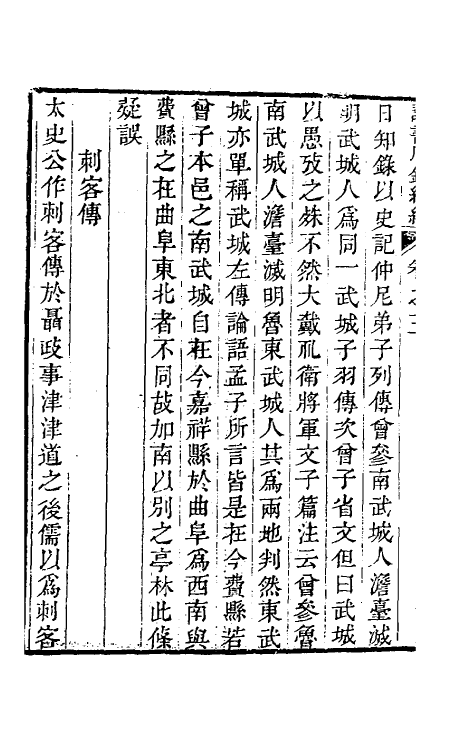 日知錄以史記仲尼弟子列傳曾參南武城人澹臺滅
明武城人爲同一武城子羽傳次曾子省文但曰武城
以愚攷之殊不然大戴礼衛將軍文子篇注云曾參魯
南武城人澹臺滅明魯東武城人其爲兩地判然東武
城亦單稱武城左傳論語孟子所言皆是在今費縣若
曾子本邑之南武城自在今嘉祥縣於曲阜爲西南與
費縣之在曲阜東北者不同故加南以别之亭林此條
疑誤
刺客傳
太史公作刺客傳於聶政事津津道之後儒以爲刺客